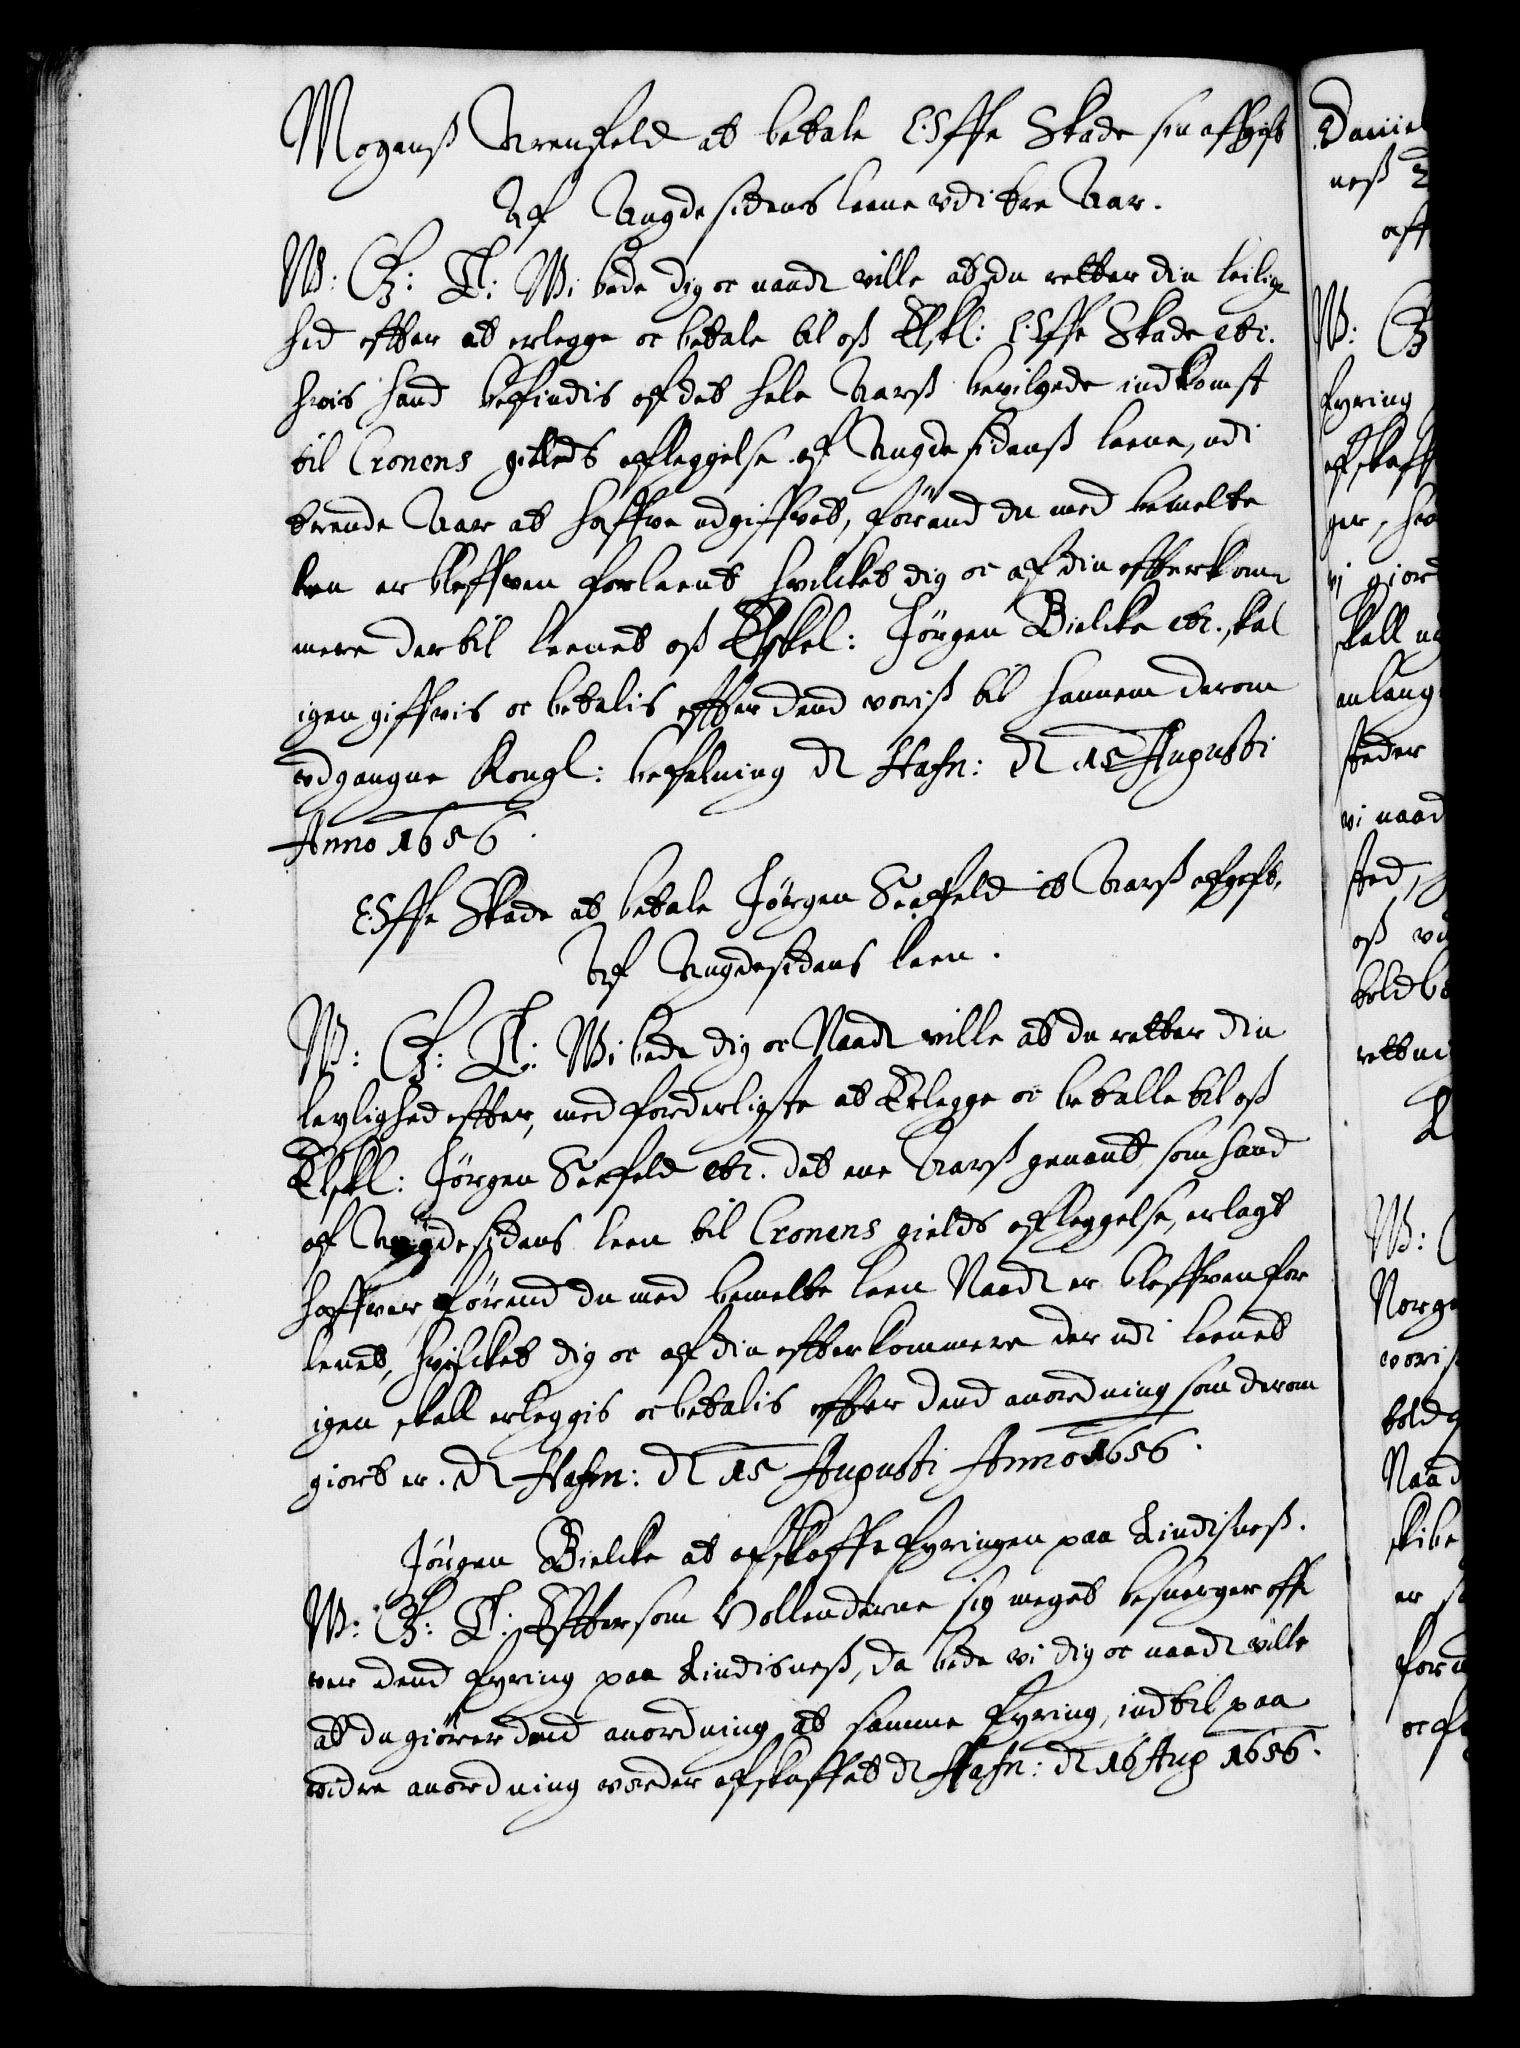 Mogenß Arenfeld at betale Eyffe Skade sin afgift
Af Augdesidens leene udi tre Aar.
W: G: T: Wi bede dig oc naadl ville at du retter din leilig
hed effter at erlegge oc betale til oß Elskl: Eyffe Skade etc.
hvis hand befindis af det hele Aarß bevilgede indkomst
til Cronens gields aflleggelse af Augdesidenß leene, udi
trende Aar at haffve udgiffvet, förend du med bemelte
leen er bleffven forleent hvilcket dig oc af din effterkom
mere der til leenet oß Elskel: Jörgen Bielcke etc. skal
igen giffvis oc betalis effter dend voriß til hannem derom
udgangne Kongl: befalning dl Hafn: dl 15 Augusti
Anno 1656.
Eyffe Skade at betale Jörgen Seefeld it Aarß afgift,
Af Augdesidens leen.
W: G: T: Wi bede dig oc Naadl ville at du retter din
leylighed effter, med forderligste at Erlegge oc betalle til oß
Elskl: Jörgen Seefeld etc. det ene Aarß genant, som hand
af Augdesidens leen til Cronens gields aflleggelse, erlagt
haffver förend du med bemelte leen Naadl er bleffven for
lenet, hvilcket dig oc af din effterkommere der udi leenet
igen skall erleggis oc betalis effter dend anordning som derom
giort er. dl Hafn: dl 15 Augusti Anno 1656.
Jörgen Bielcke at afskaffe fyringen paa Lindisneß.
W: G: T: Effter som Hollenderne sig meget besverger off
ver dend fyring paa Lindisneß, da bede vi dig oc naadl ville
at du giörer dend anordning at samme fyring, indtil paa
vidre anordning vorder afskaffet dl Hafn: dl 16 Aug 1656.
Daniel
neß
aff
W: G
fyring
afskaff
ger, hvo
vi giord
skall
anlang
steder
vi naad
sted,
oß
told
W:
Norge
voriß
told
Naad
skibe
er
for
oc